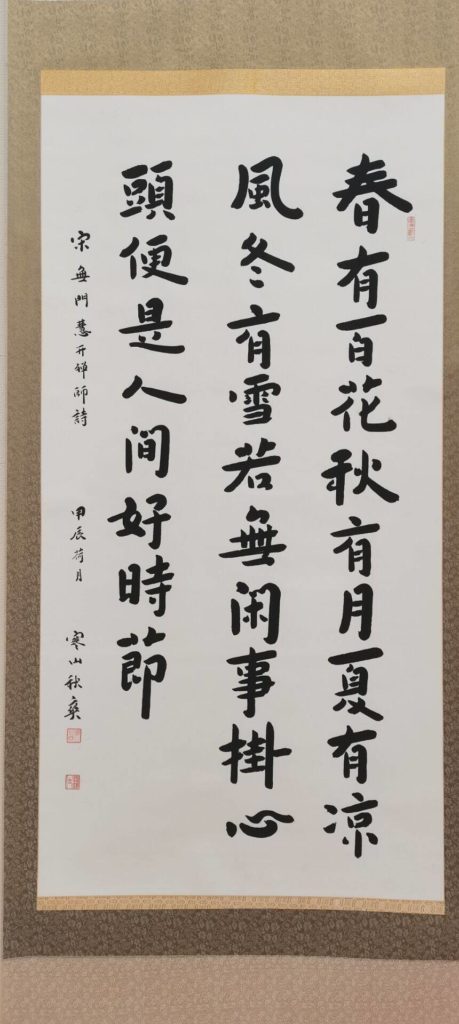 春有百花秋有月夏有凉
風冬有雪若無闲事掛心
頭便是人间好時節
宋無門慧开禅師詩
甲辰荷月
寒山秋爽